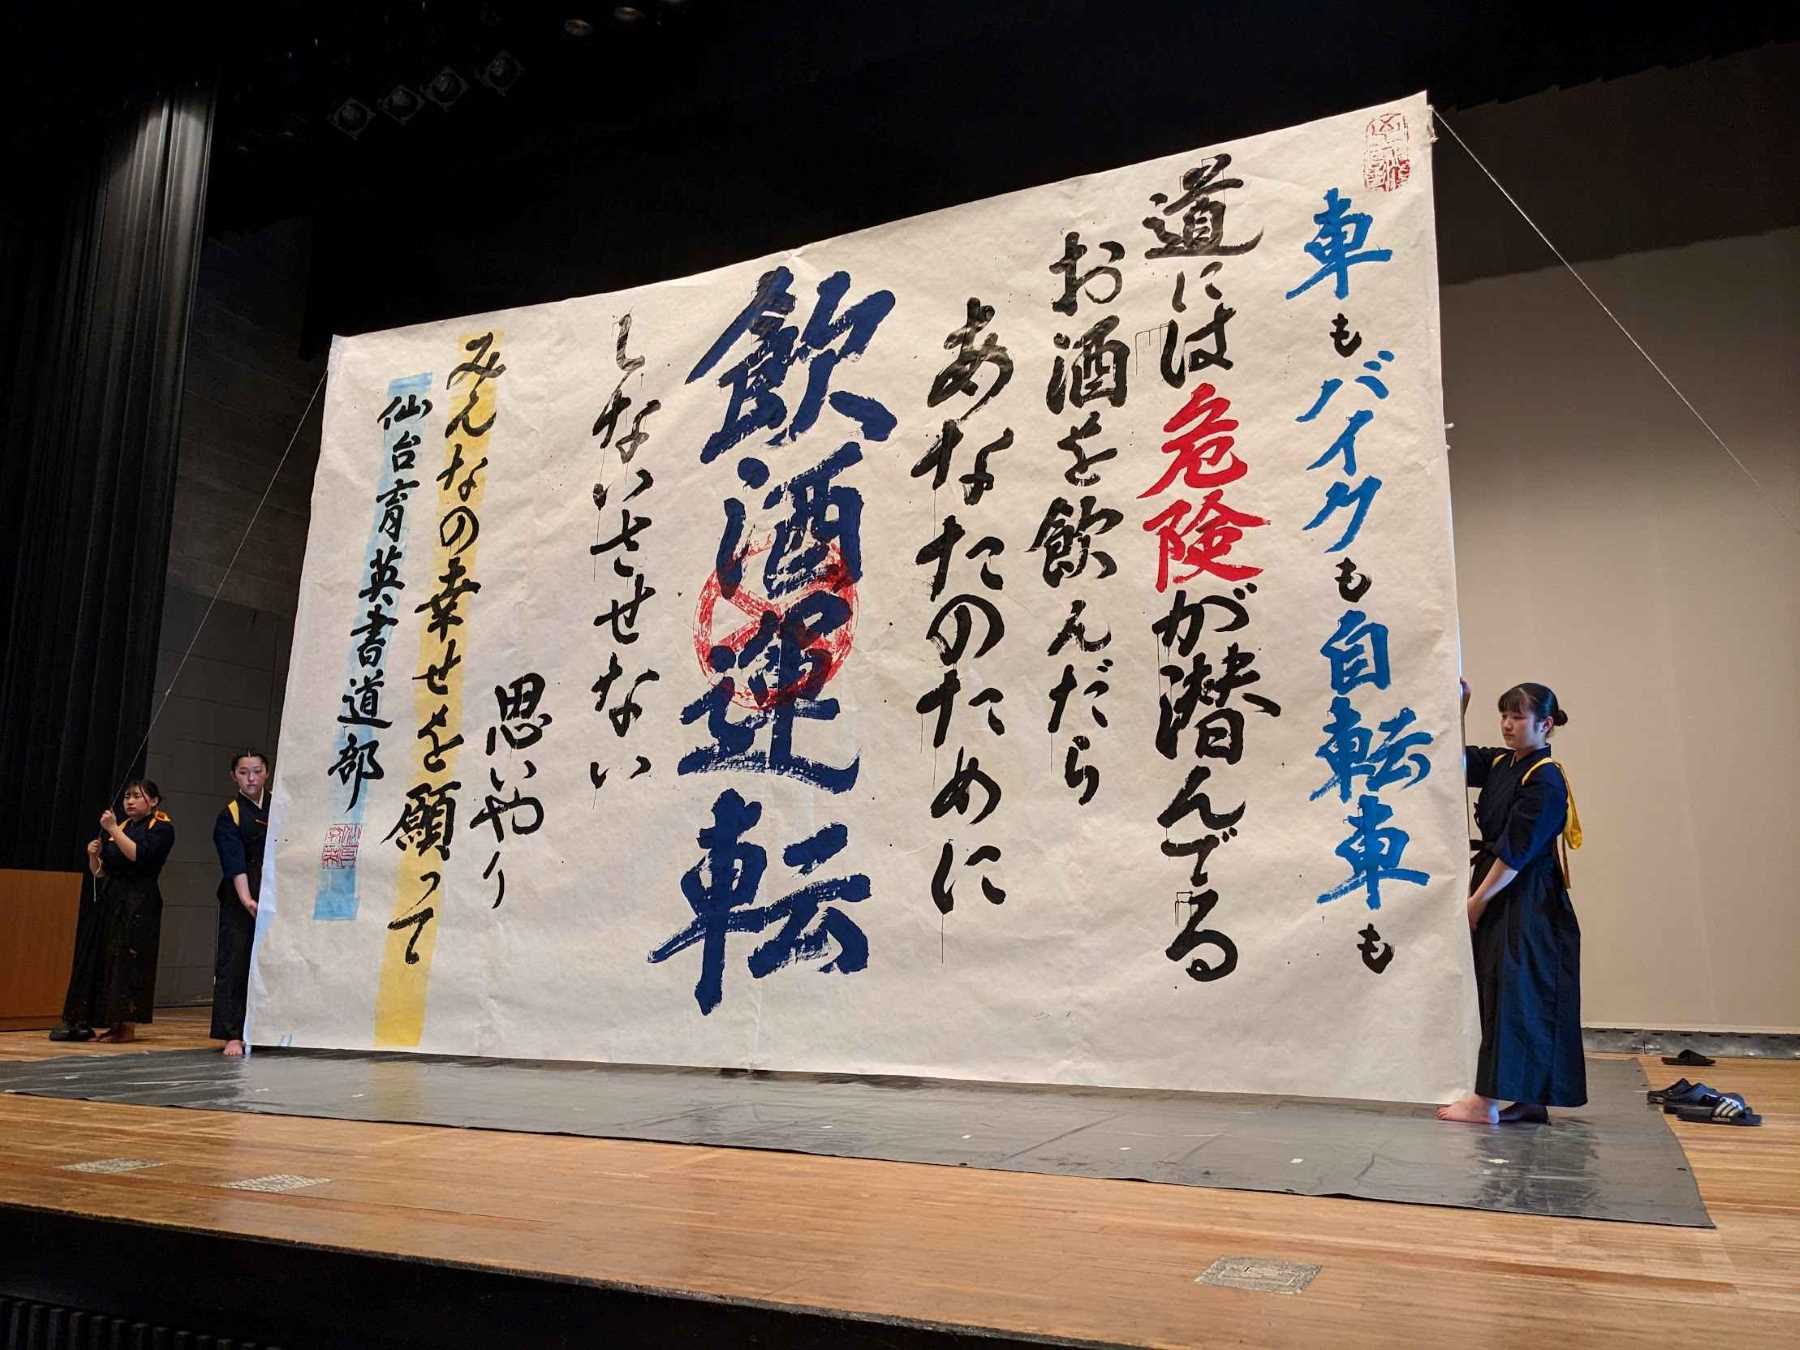 車もバイクも自転車も
道には危険が潜んでる
お酒を飲んだら
あなたのために
飲酒運転
しないさせない
思いやり
みんなの幸せを願って
仙台育英書道部